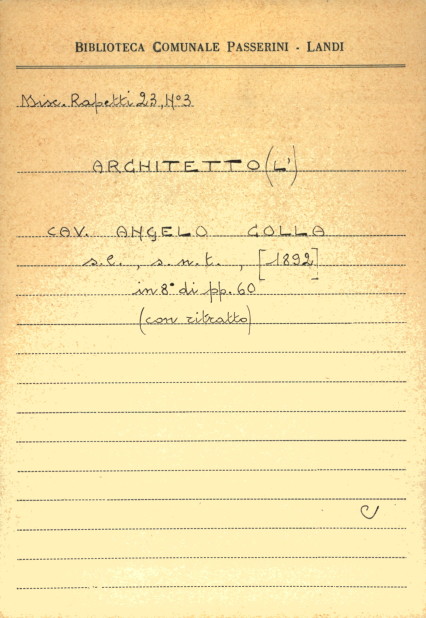 BIBLIOTECA COMUNALE PASSERINI - LANDI
Misc. Rapetti 23, N° 3
ARCHITETTO (L')
CAV. ANGELO COLLA
s.l., s.n.t., [1892]
in 8° di pp. 60
(con ritratto)